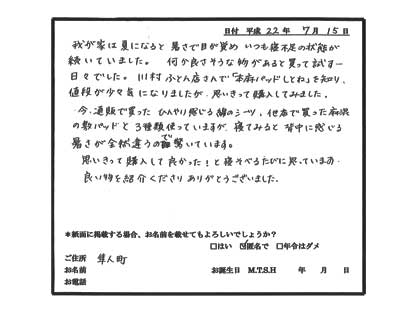 日付 平成 22年 7月 15日
我が家は夏になると暑さで目が覚め いつも寝不足の状態が
続いていました。 何か良さそうな物があると買って試す一
日々でした。 川村ふとん店さんで「本麻パッドしとね」を知り、
値段が少々気になりましたが、思いきって購入してみました。
今、通販で買った ひんやり感じる綿のシーツ、他店で買った麻混
の敷パッドと 3種類使っていますが、寝てみると 背中に感じる
暑さが全然違うので 驚いています。
思いきって購入して良かった!と寝そべるたびに思っています。
良い物を紹介くださり ありがとうございました。
*紙面に掲載する場合、お名前を載せてもよろしいでしょうか?
□はい ☑匿名で □年令はダメ
ご住所 隼人町
お名前 お誕生日 M.T.S.H 年 月 日
お電話